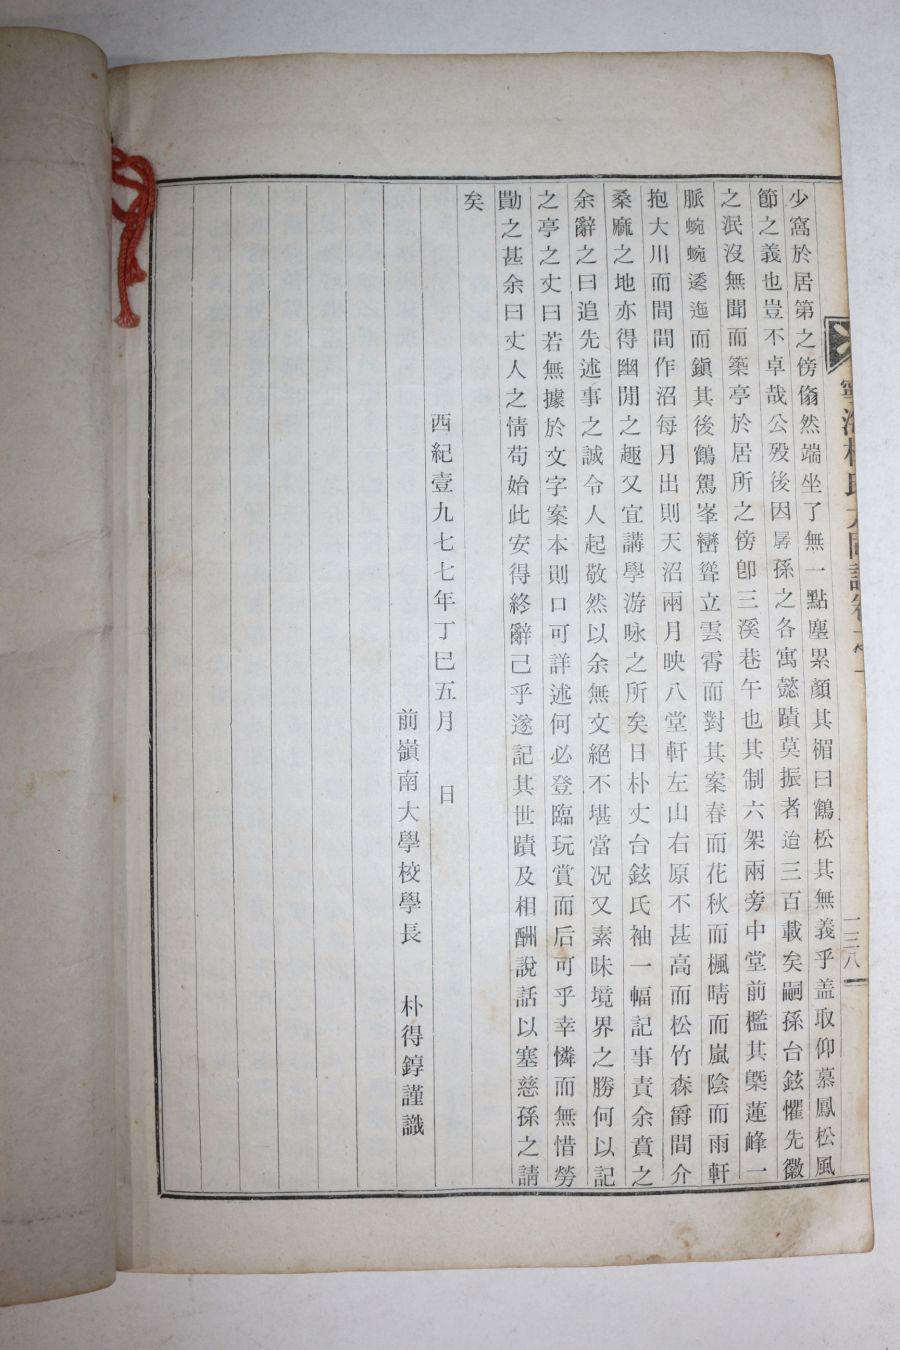 少窩於居第之傍翛然端坐了無一點塵累顏其楣曰鶴松其無義乎盖取仰慕鳳松風
節之義也豈不卓哉公歿後因孱孫之各寓懿蹟莫振者迨三百載矣嗣孫台鉉懼先徽
之泯沒無聞而築亭於居所之傍卽三溪巷午也其制六架兩旁中堂前檻其槩蓮峰一
脈蜿蜿逶迤而鎭其後鶴駕峯巒聳立雲霄而對其案春而花秋而楓晴而嵐陰而雨軒
抱大川而間間作沼每月出則天沼兩月映八堂軒左山右原不甚高而松竹森爵間介
桑麻之地亦得幽閒之趣又宜講學游咏之所矣日朴丈台鉉氏袖一幅記事責余賁之
余辭之曰追先述事之誠令人起敬然以余無文絕不堪當况又素昧境界之勝何以記
之亭之丈曰若無據於文字案本則口可詳述何必登臨玩賞而后可乎幸憐而無惜勞
勩之甚余曰丈人之情苟始此安得終辭己乎遂記其世蹟及相酬說話以塞慈孫之請
矣
西紀壹九七七年丁巳五月　日
前嶺南大學校學長　朴得錞謹識
氏大同譜卷
一三八